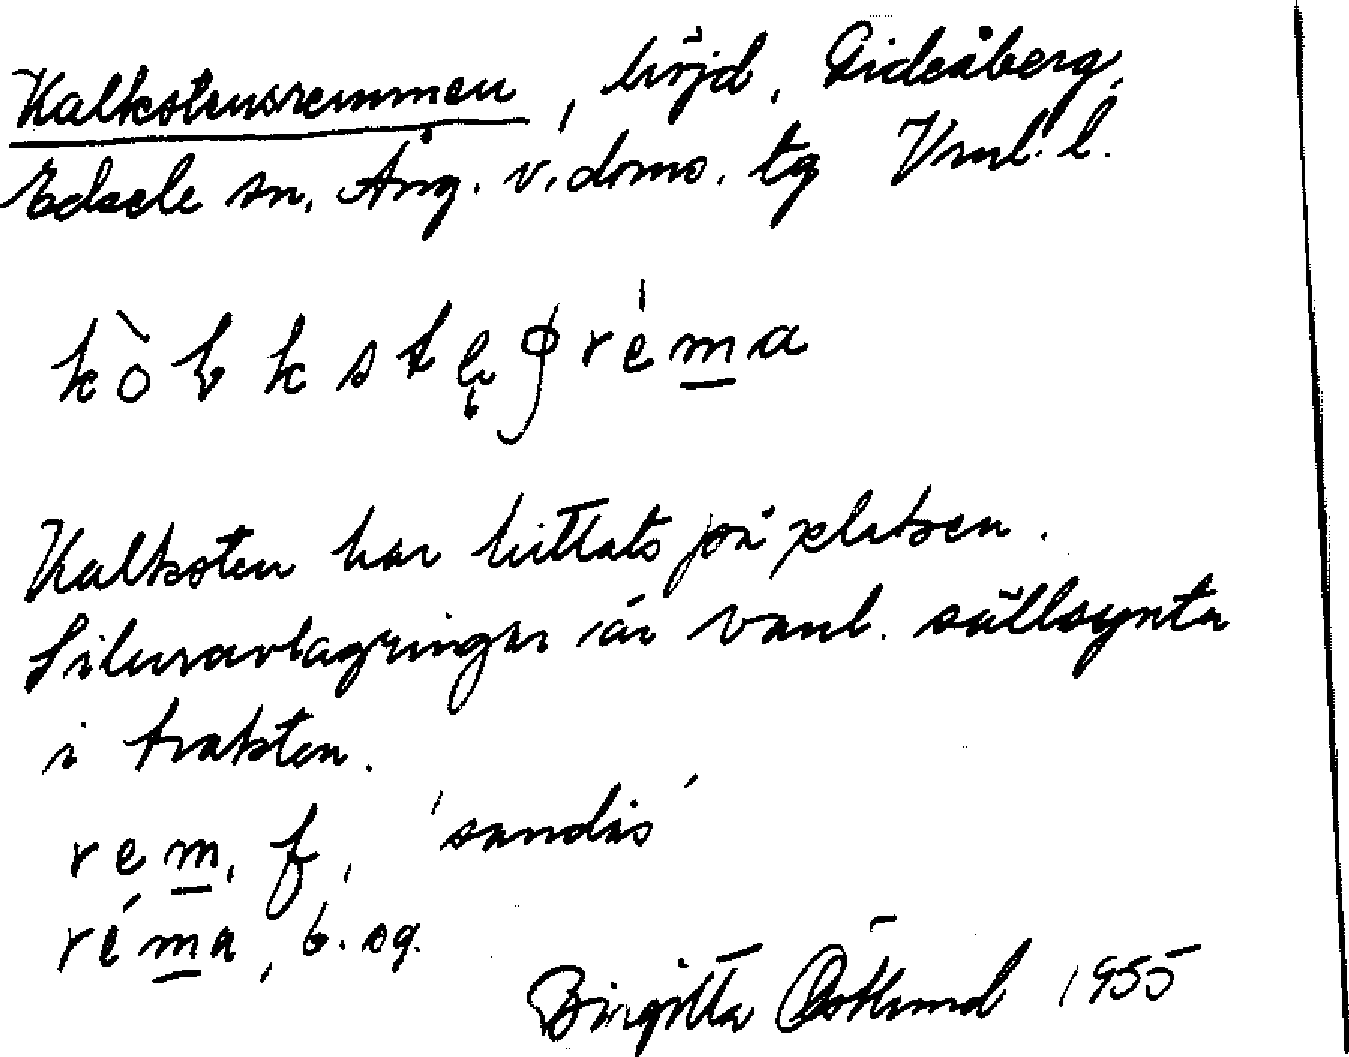 Kalkstensremmen, höjd, Gideåberg,
Edsele sn, Ång. v. doms. tg Vml. l.
réma
Kalksten har hittats på platsen.
Siluravlagringar är vanl. sällsynta
i trakten.
rem, f, 'sandås'
réma, b. sg.
Birgitta Östlund 1955